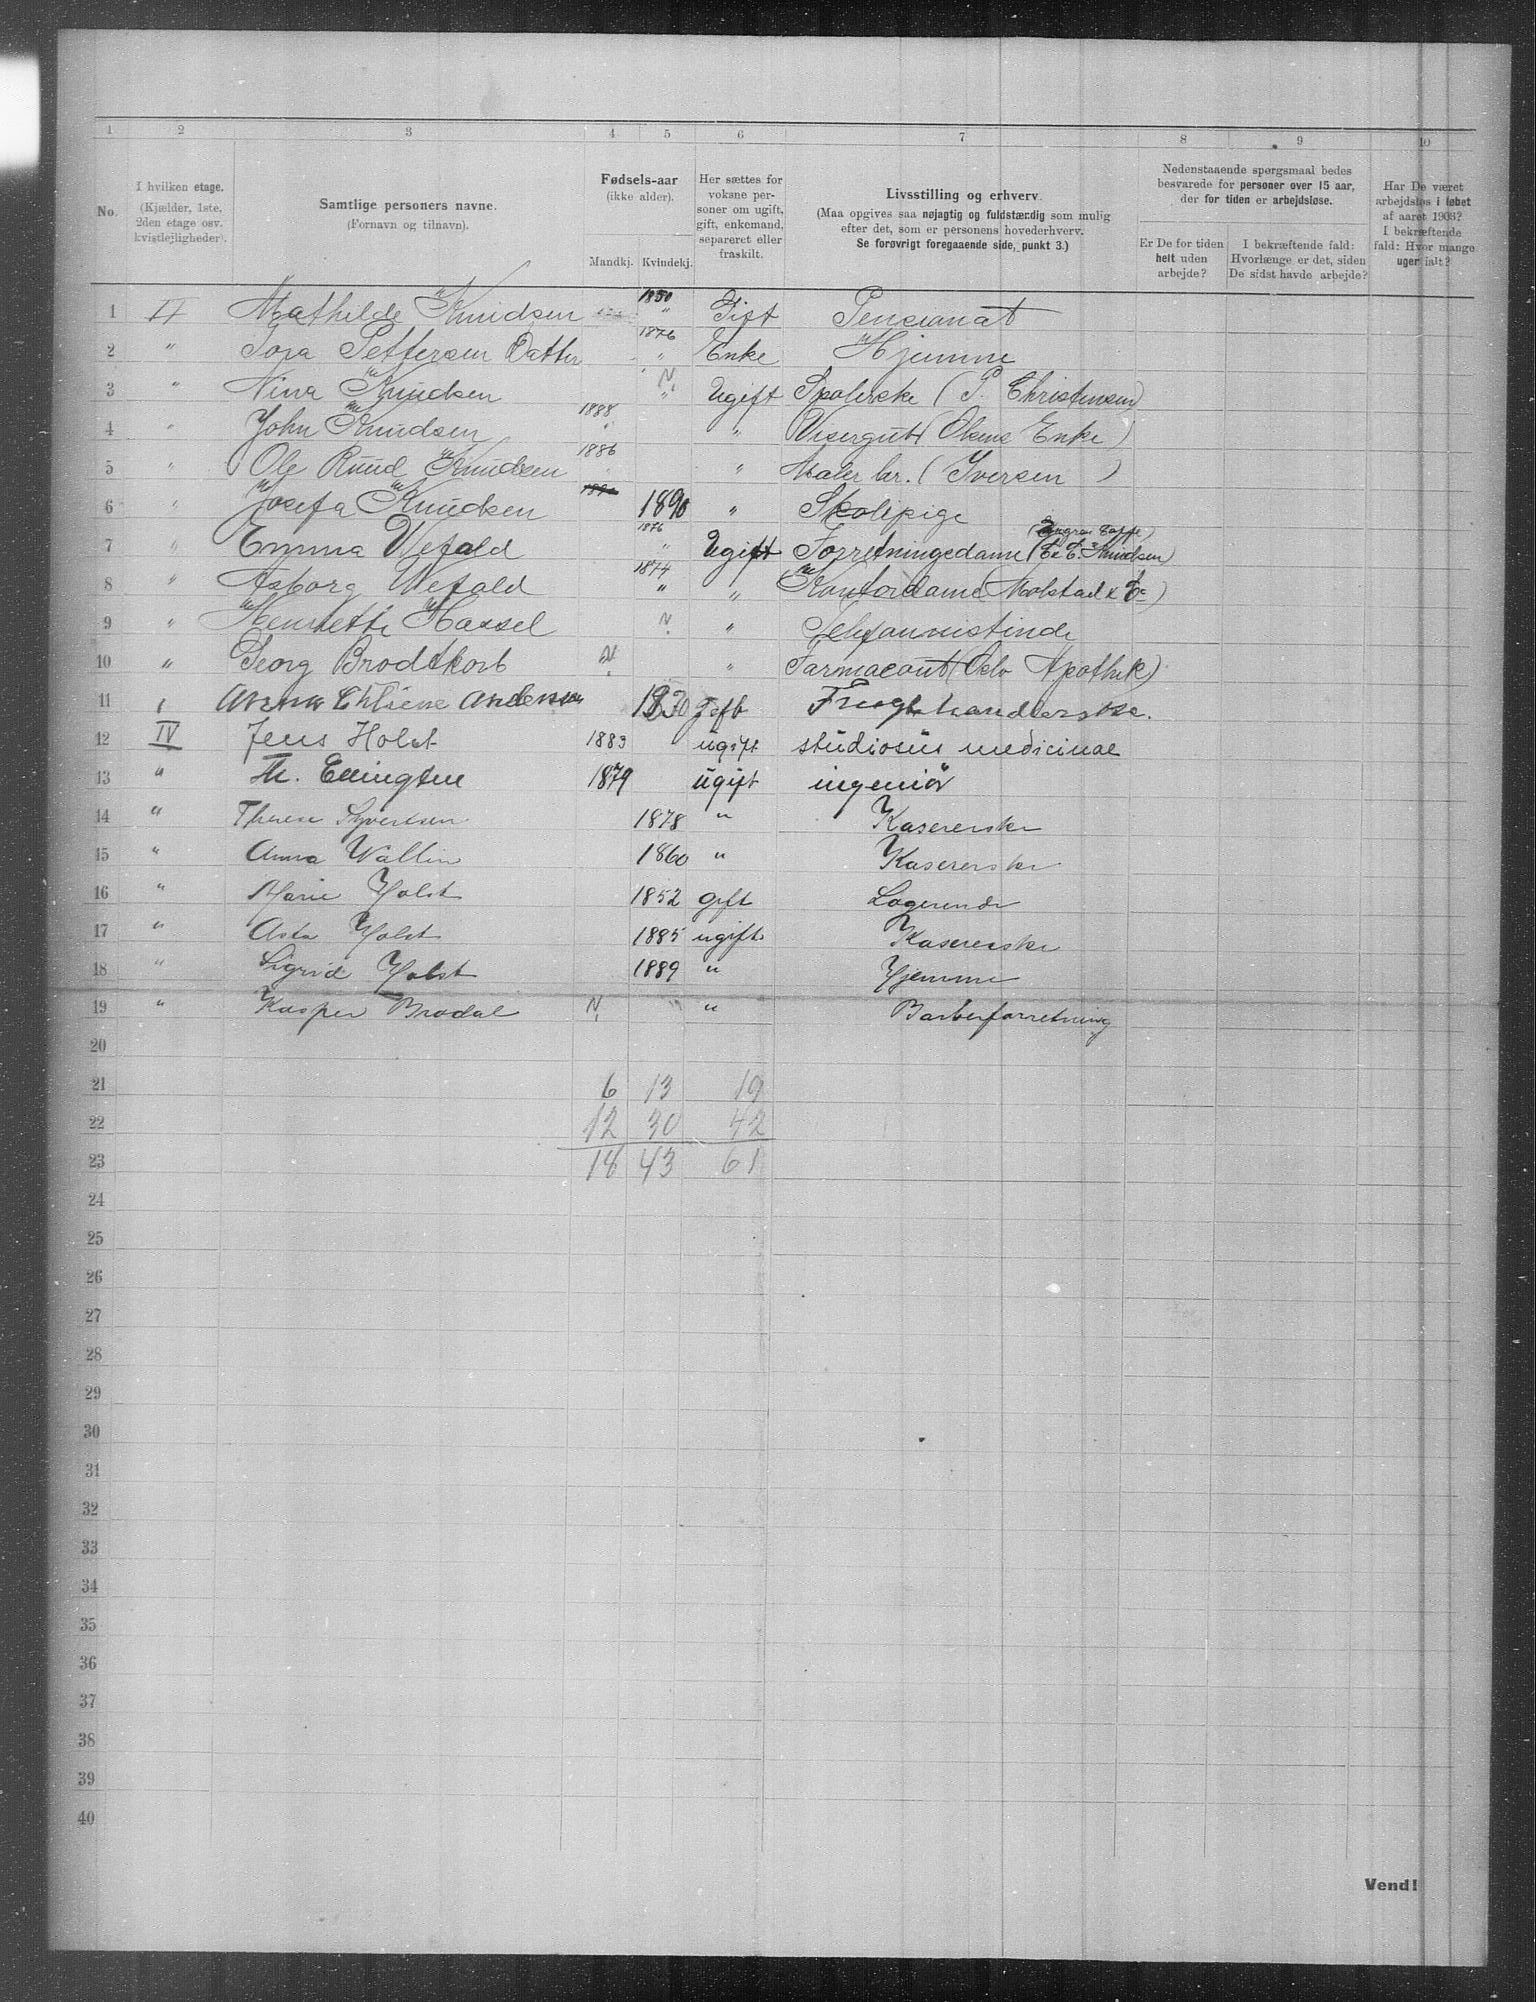 1 2 3 4 5 6 7 8 9 10
No.
I hvilken etage.
(Kjælder, 1ste,
2den etage osv.
kvistlejligheder).
Samtlige personers navne.
(Fornavn og tilnavn).
Fødsels-aar
(ikke alder).
Mandkj. Kvindekj.
Her sættes for
voksne per-
soner om ugift,
gift, enkemand,
separeret eller
fraskilt.
Livsstilling og erhverv.
(Maa opgives saa nøjagtig og fuldstændig som mulig
efter det, som er personens hovederhverv.
Se forøvrigt foregaaende side, punkt 3.)
Nedenstaaende spørgsmaal bedes
besvarede for personer over 15 aar,
der for tiden er arbejdsløse.
Er De for tiden
helt uden
arbejde?
I bekræftende fald:
Hvorlænge er det, siden
De sidst havde arbejde?
Har De været
arbejdsløs i løbet
af aaret 1903?
I bekræftende
fald: Hvor mange
uger ialt?
1 Mathilde Knudsen 1850 " Gift Pensionat
2 " Pettersen Datter 1876 " Enke Hjemme
3 " Nina Knudsen N. " Ugift (P. Christensen)
4 " John Knudsen 1888 " " Visergut (Olsens Enke)
5 " Ole Ruud Knudsen 1886 " Maler lær. (Iversen)
6 " Josefa Knudsen 1890 " Skolepige
7 " Emma Wefald 1876 " Ugift Forretningsdame Knudsen)
8 " Asborg Wefald 1874 " " Kontordame (Molstad & Co)
9 " Henriette Hassel N. " Telefonnistinde
10 " Georg Brodtkorb N. " Farmaceut (Oslo Apothek)
11 " Andersen 1870 Gift Frugthandlerske.
12 IV Jens Holst 1883 ugift studiosus medicinae
13 " Th. Ellingsen 1879 ugift ingeniør
14 " Therese Syvertsen 1878 " Kasererske
15 " Anna Wallin 1860 " Kasererske
16 " Marie Holst 1852 gift Logerende
17 " Asta Holst 1885 ugift Kasererske
18 " Sigrid Holst 1889 " Hjemme
19 " Kasper Brodal N. " Barberforretning
20
21 6 13 19
22 12 30 42
23 18 43 61
24
25
26
27
28
29
30
31
32
33
34
35
36
37
38
39
40
Vend!